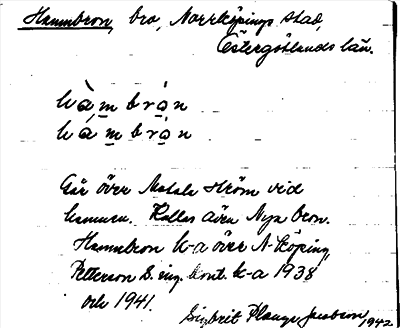 Hamnbron, bro, Norrköpings stad,
Östergötlands län.
hàmbrón
hámbròn
Går över Motala ström vid
hamnen. Kallas även Nya bron.
Hamnbron k-a över N-köping,
Petterson S. ing. kont. k-a 1938
och 1941.
Sigbrit Plange Jacobson, 1942